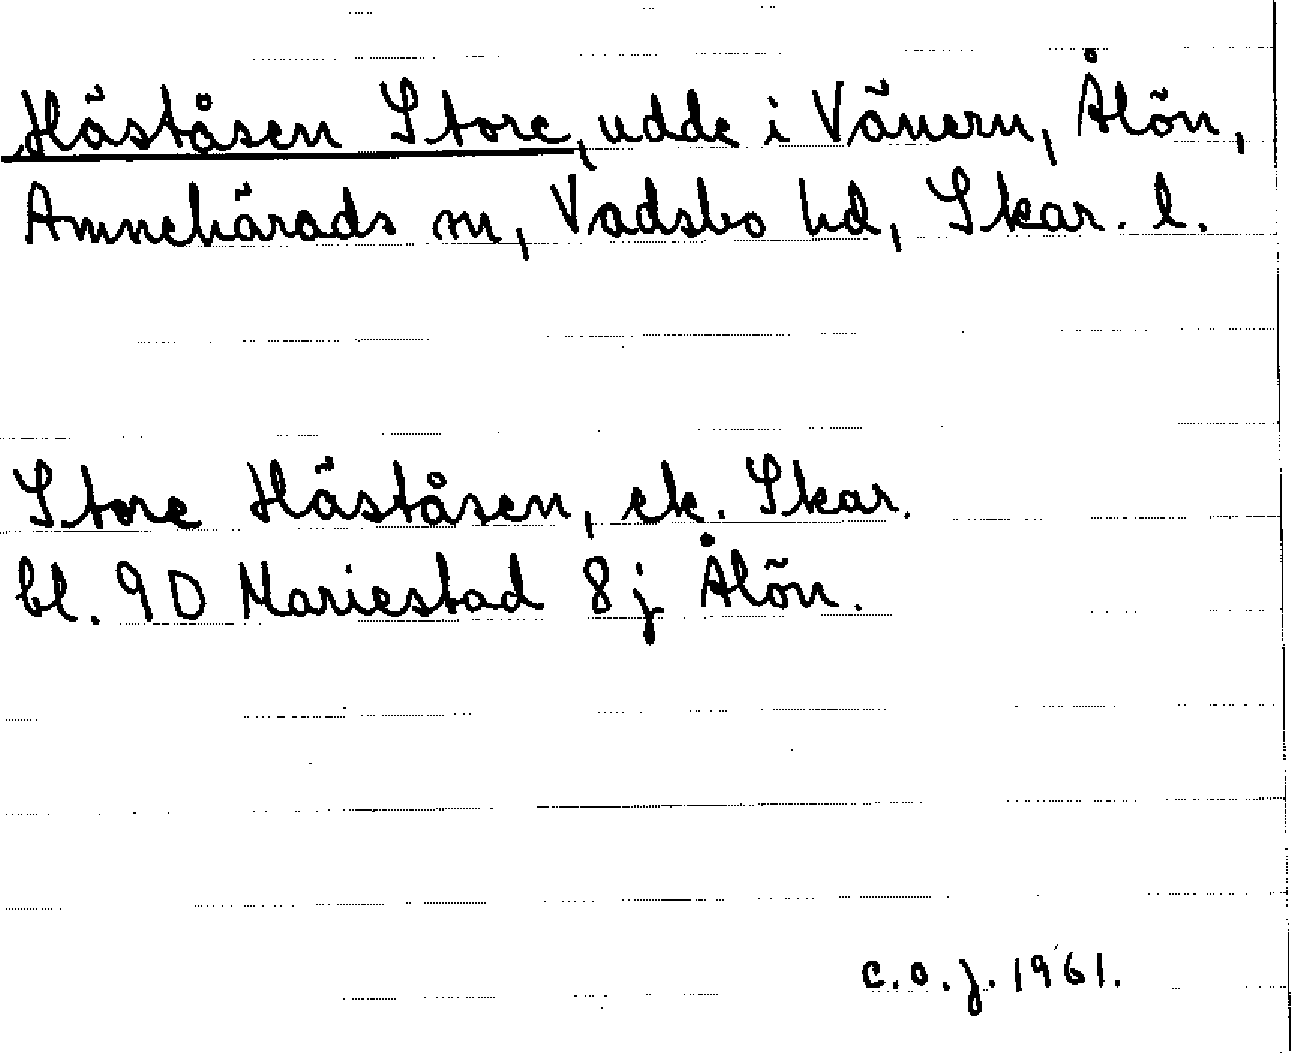 Häståsen Store, udde i Vänern, Ålön,
Amnehärads sn, Vadsbo hd, Skar. l.
Store Häståsen, ek. Skar.
bl. 9D Mariestad 8j Ålön.
C.O.J. 1961.